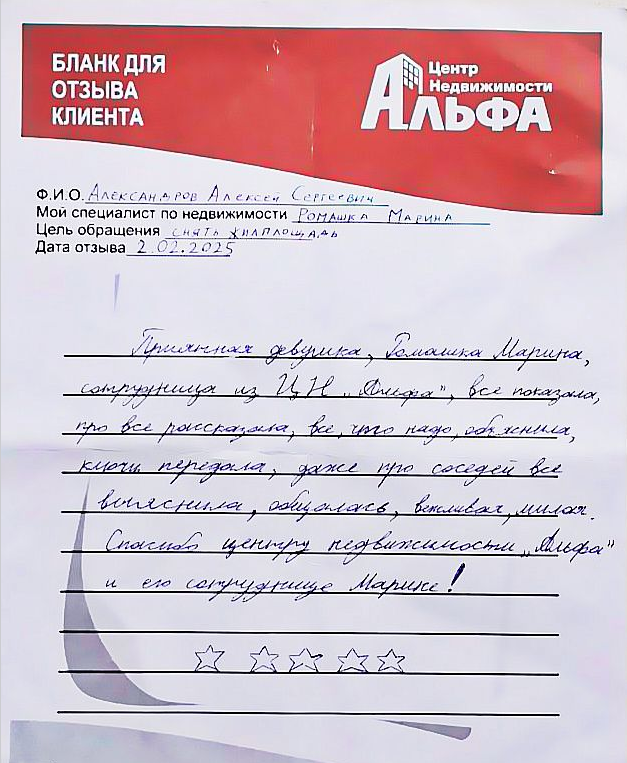 БЛАНК ДЛЯ
ОТЗЫВА
КЛИЕНТА
Центр
Недвижимости
АЛЬФА
Ф.И.О. Александров Алексей Сергеевич
Мой специалист по недвижимости Ромашка Марина
Цель обращения снять жилплощадь
Дата отзыва 2.02.2025
Приятная девушка, Ромашка Марина,
сотрудница из ЦН „Альфа“, все показала,
про все рассказала, все, что надо, объяснила,
ключи передала, даже про соседей все
выяснила, общалась, вежливая, милая.
Спасибо центру недвижимости „Альфа“
и его сотруднице Марине!